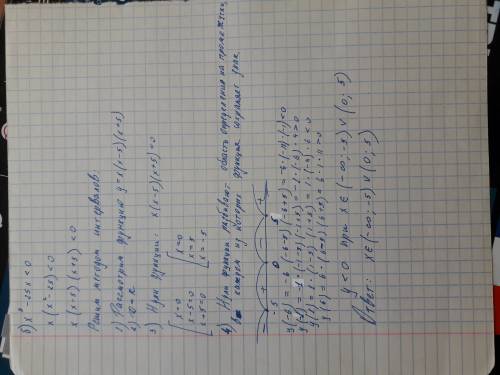 б) x³ - 25x < 0
x (x² - 25) < 0
x (x - 5) (x + 5) < 0
Решим методом интервалов.
1) Рассмотрим функцию y = x (x - 5) (x + 5)
2) D = R
3) Нули функции: x (x - 5) (x + 5) = 0
x = 0
x - 5 = 0
x + 5 = 0
x = 0
x = 5
x = -5
4) Нули функции разбивают область определения на промежутки,
в каждом из которых функция сохраняет знак.
- + - +
-5 0 5
y(-6) = -6 (-6 - 5) (-6 + 5) = -6 · (-11) · (-1) < 0
y < 0 при x ∈ (-∞; -5) ∨ (0; 5)
Ответ: x ∈ (-∞; -5) ∨ (0; 5)